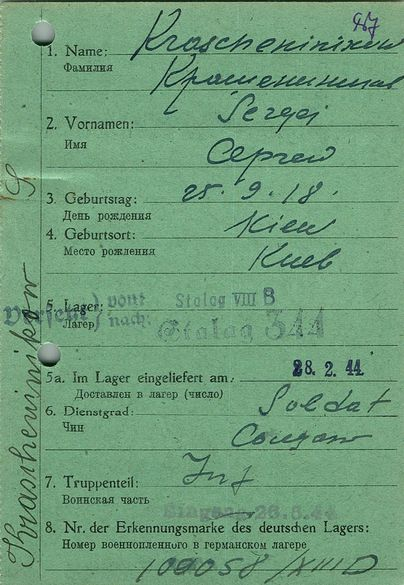 47
1. Name: Krascheninikow
Фамилия
Крашенинников
2. Vornamen: Sergej
Имя
Сергей
3. Geburtstag: 25.9.18.
День рождения
4. Geburtsort: Kiew
Место рождения
Киев
5. Lager: Versetzt vom: Stalag VIII B
Лагерь nach: Stalag 344
5a. Im Lager eingeliefert am: 28.2.44
Доставлен в лагерь (число)
6. Dienstgrad: Soldat
Чин
Солдат
7. Truppenteil: Inf
Воинская часть
Eingang 28.8.44
8. Nr. der Erkennungsmarke des deutschen Lagers:
Номер военнопленного в германском лагере
109058/XIII D
Krascheninikow S